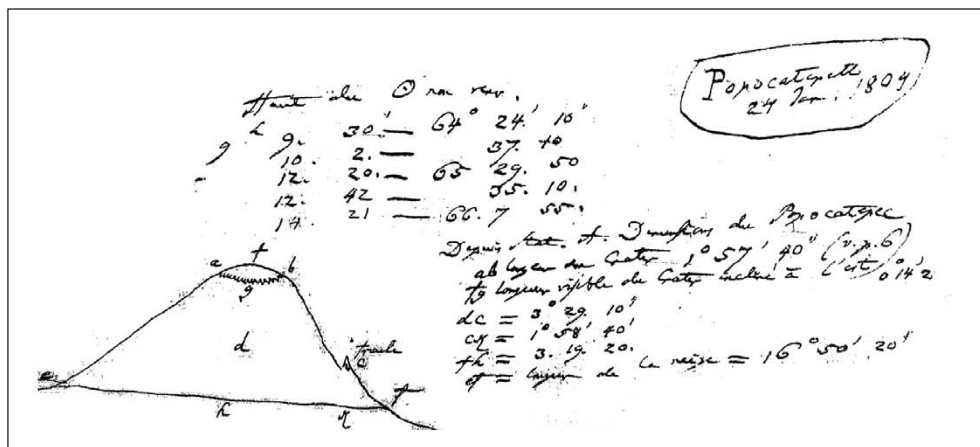 Popocatepetl
24 Jan. 1804
Haut du ⊙ non renv.
9 h 9. 30." — 64° 24.' 10"
10. 2. — 37. 40
12. 20. — 65 29. 50
12. 42 — 35. 10.
14. 21 — 66. 7 55.
Depuis Stat. A. Dimensions du Popocatepec
ab largeur du Crater 1° 57' 40" (v. p. 6)
fg longueur visible du Crater incliné à l'est 0° 14' 2
dc = 3° 29. 10"
cx = 1° 58' 40'
fh = 3. 19. 20.
ef = largeur de la neige = 16° 50' 20'
a f b
g
d
c
e
h x f